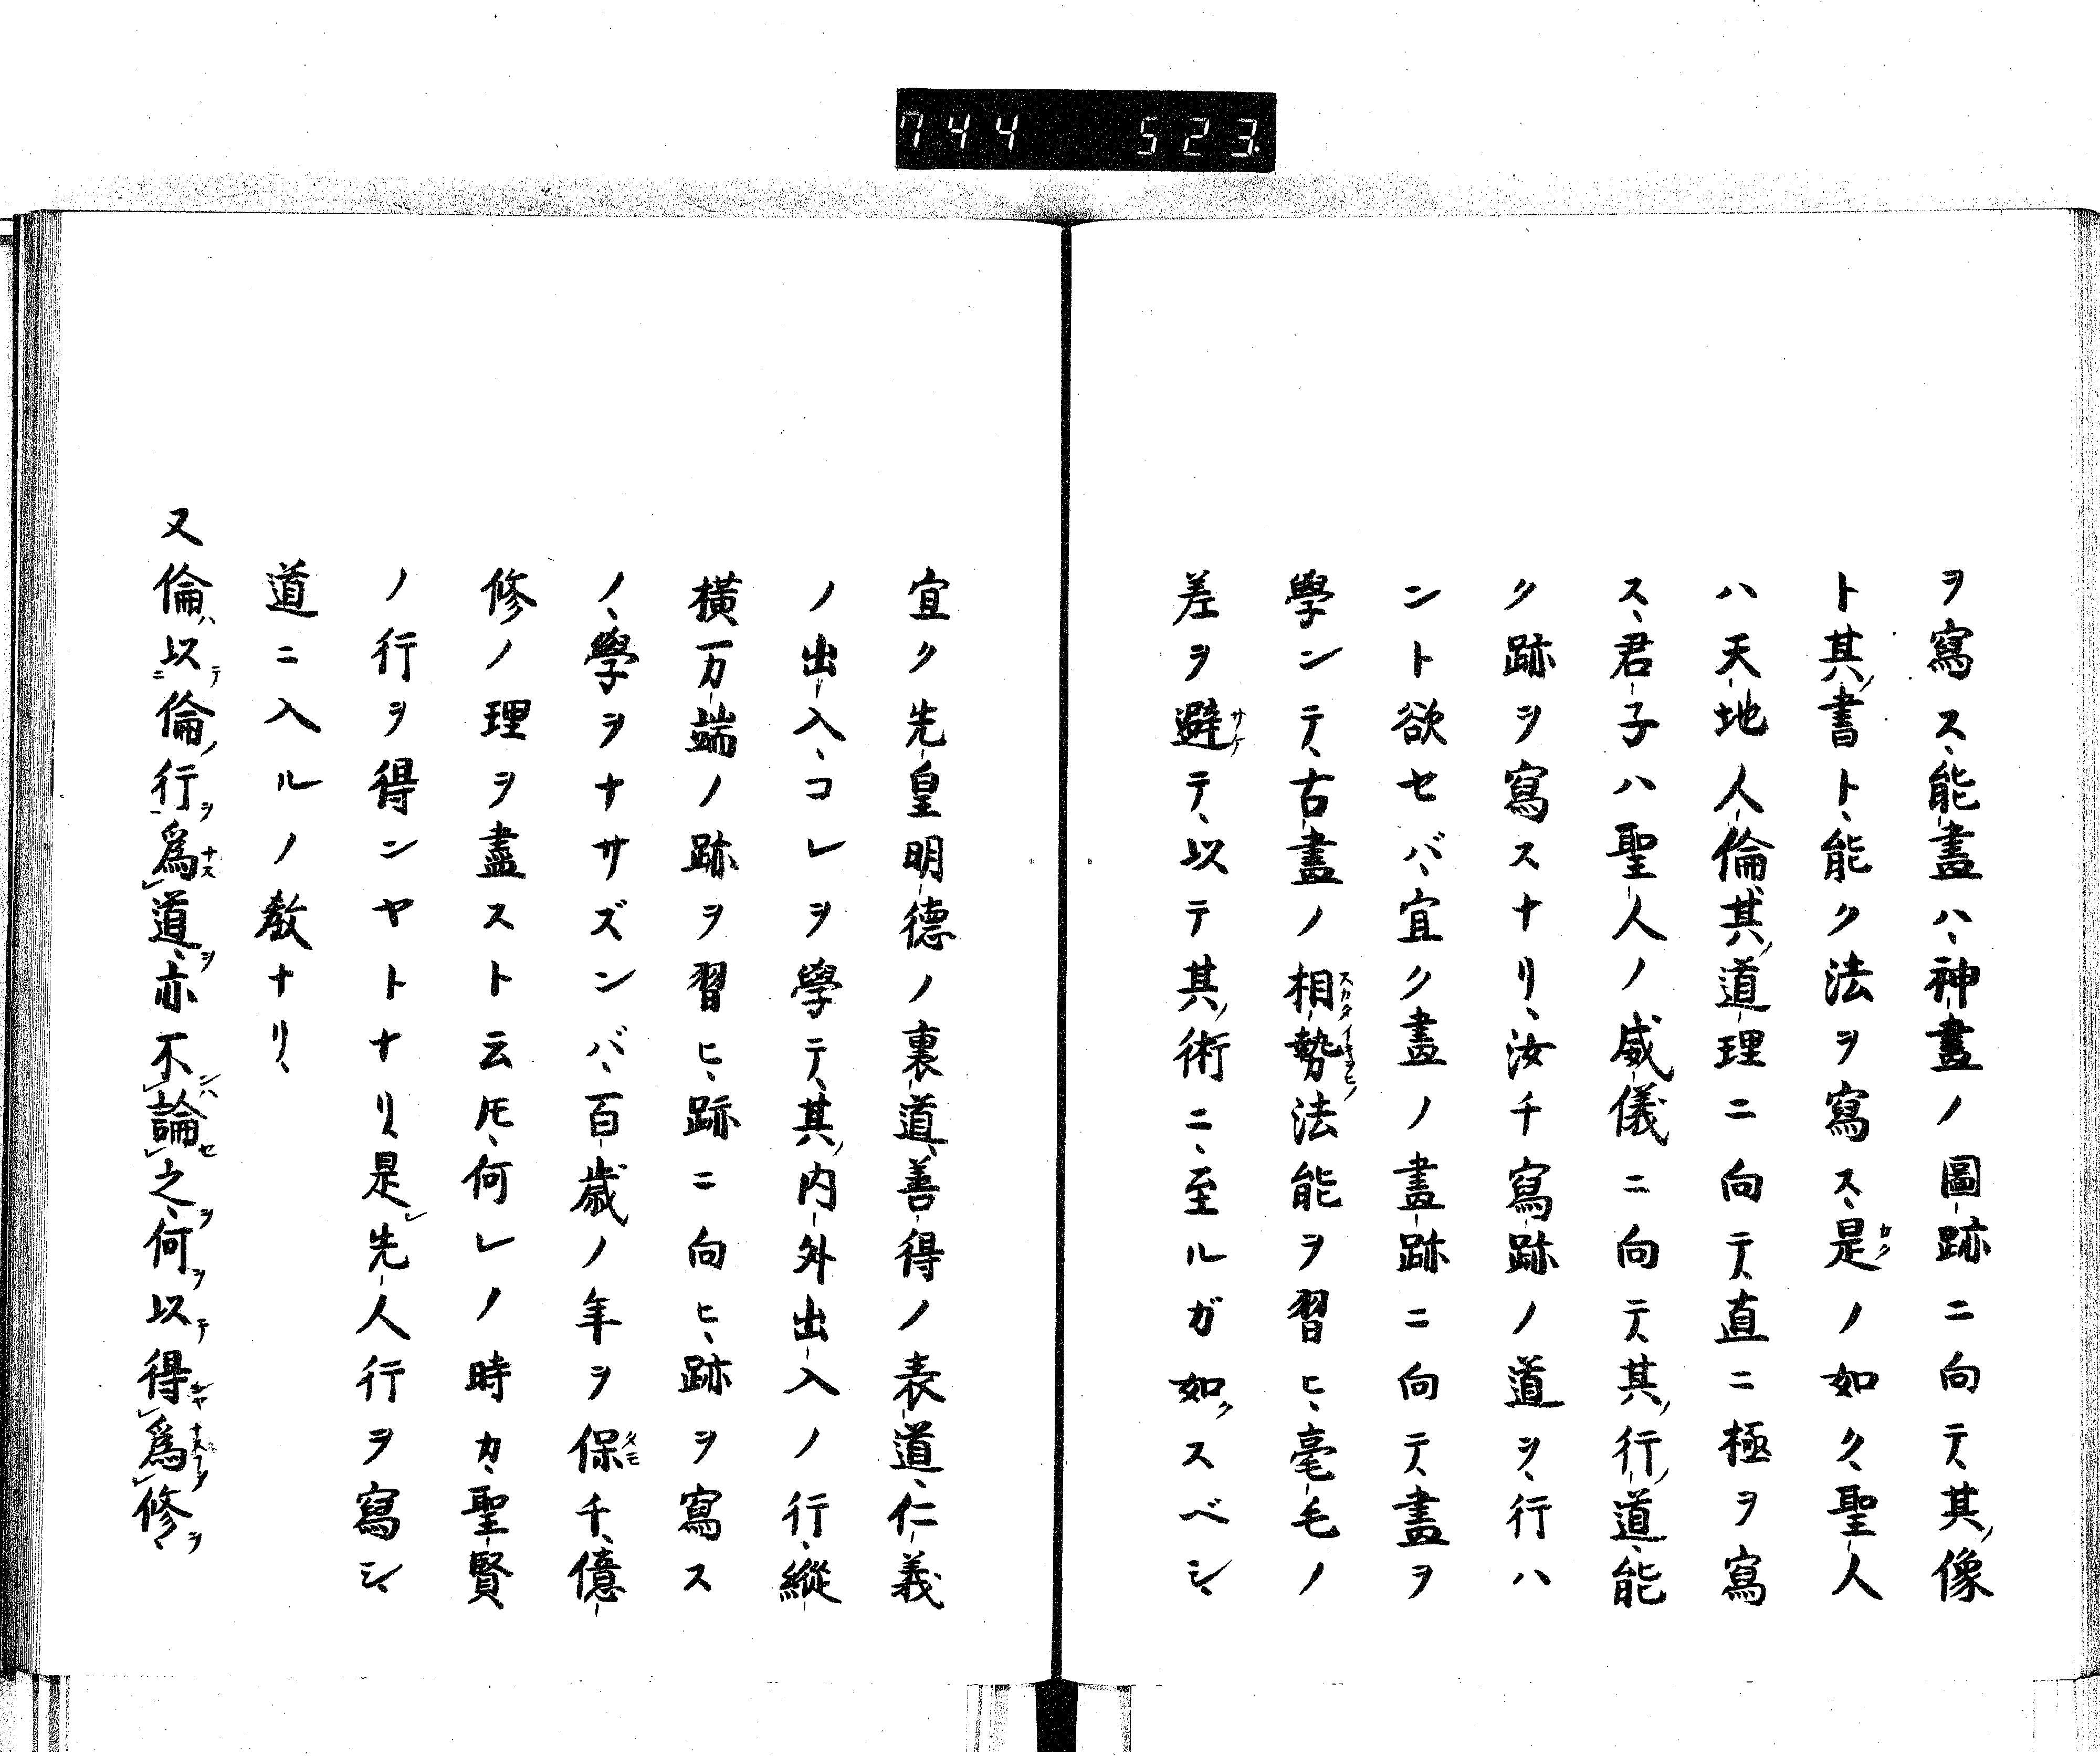 744 523
ヲ寫ス、能畫ハ、神畫ノ圖跡ニ向テ、其ノ像
ト其ノ書ト、能ク法ヲ寫ス、是ノ如ク、聖人
ハ天地人倫、其ノ道理ニ向テ、直ニ極ヲ寫
ス、君子ハ聖人ノ威儀ニ向テ、其ノ行ノ道、能
ク跡ヲ寫スナリ、汝チ寫跡ノ道ヲ、行ハ
ント欲セバ、宜ク畫ノ畫跡ニ向テ、畫ヲ
學ンテ、古畫ノ相勢法能ヲ習ヒ、毫毛ノ
差ヲ避テ、以テ其ノ術ニ、至ルガ如クスベシ、
宜ク先皇明德ノ裏道、善得ノ表道、仁義
ノ出入、コレヲ學テ、其ノ内外出入ノ行、縱
橫万端ノ跡ヲ習ヒ、跡ニ向ヒ、跡ヲ寫ス
ノ、學ヲナサズンバ、百歳ノ年ヲ保千、億
修ノ理ヲ盡スト云𪜈、何レノ時カ、聖賢
ノ行ヲ得ンヤトナリ、是レ先人行ヲ寫シ、
道ニ入ルノ教ナリ、
又倫ハ以テ倫ノ行ヲ爲ナス道ヲ、亦不ンハ論セ之ヲ、何ヲ以テ得ンヤ爲修ヲ、